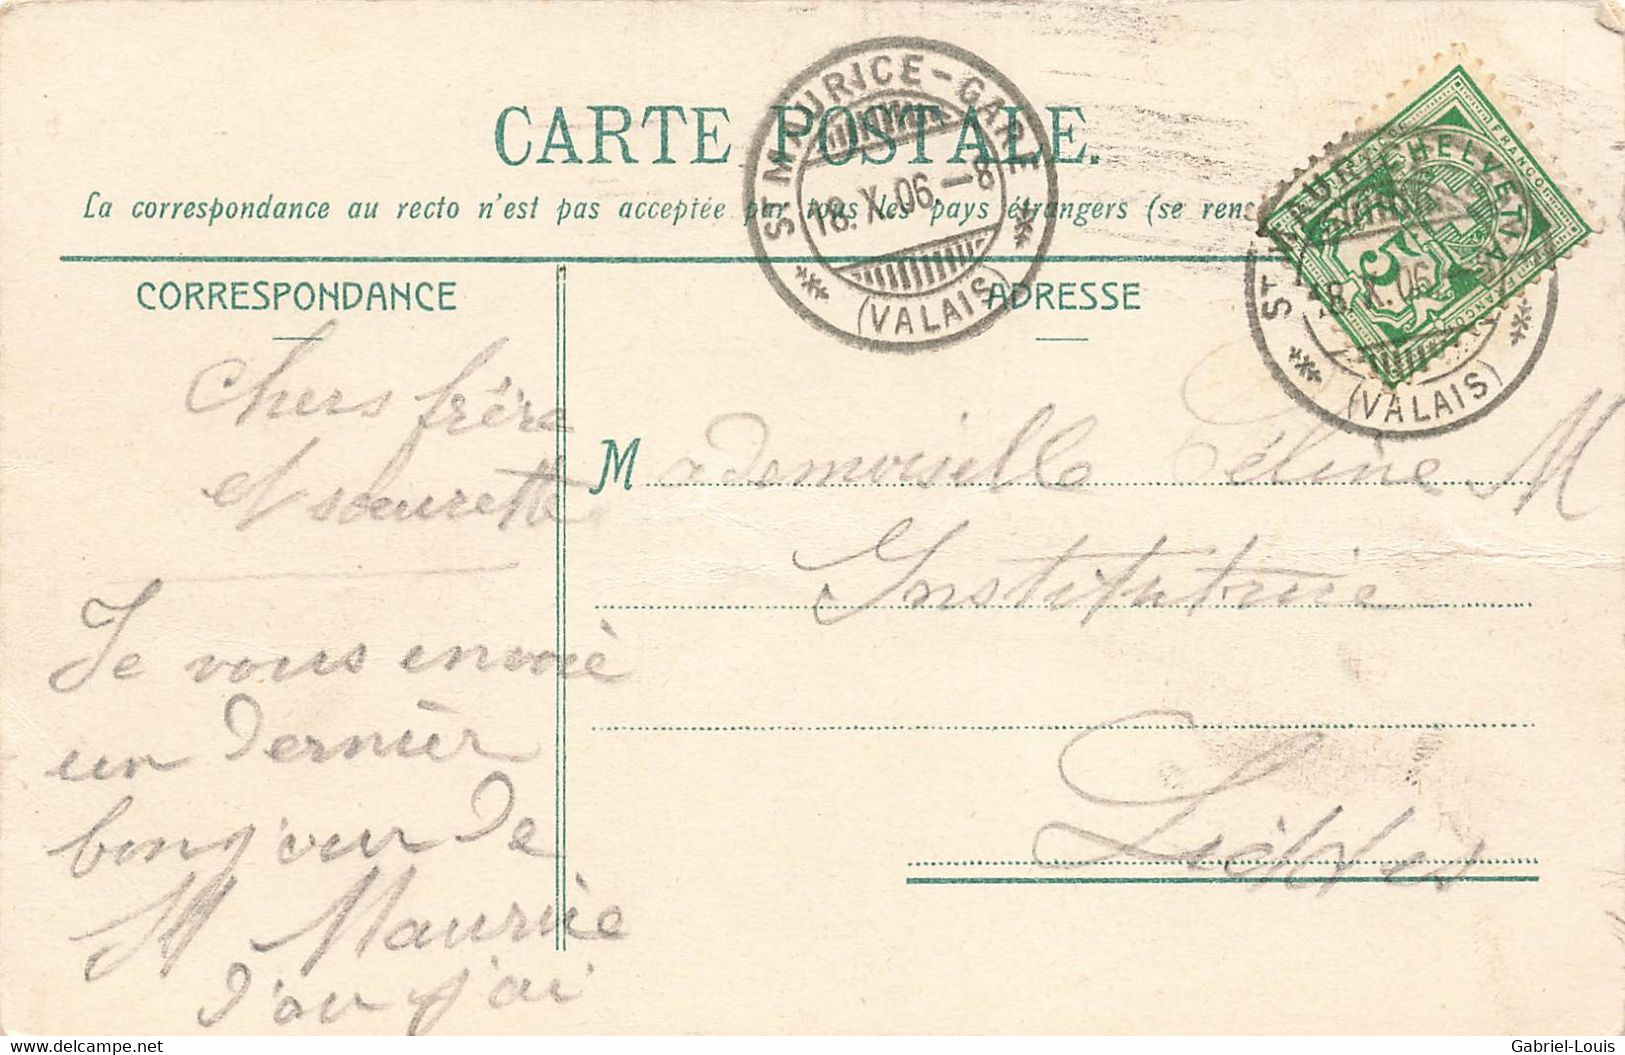 CARTE POSTALE.
La correspondance au recto n'est pas acceptée par tous les pays étrangers (se rens
ST MAURICE-GARE
18.X.06.-8
(VALAIS)
HELVETIA
FRANCO
5
ST MAURICE
18.X.06
(VALAIS)
CORRESPONDANCE
ADRESSE
Chers frère
et sœurette
Je vous envoie
un dernier
bonjour de
St Maurice
d'où j'ai
Mademoiselle Céline M
Institutrice
Liddes
delcampe.net
Gabriel-Louis